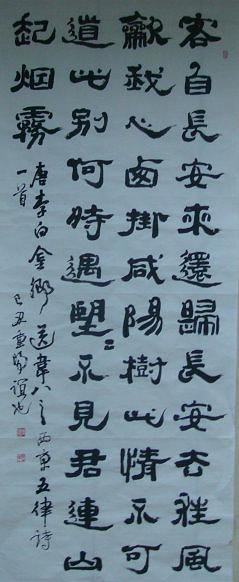 客自長安來還歸長安去狂風
龡我心卥掛咸陽樹此情不可
道此別何時遇望〻不見君連山
起烟霧
唐李白金鄉送韋八之西京五律詩
一首
己丑重陽